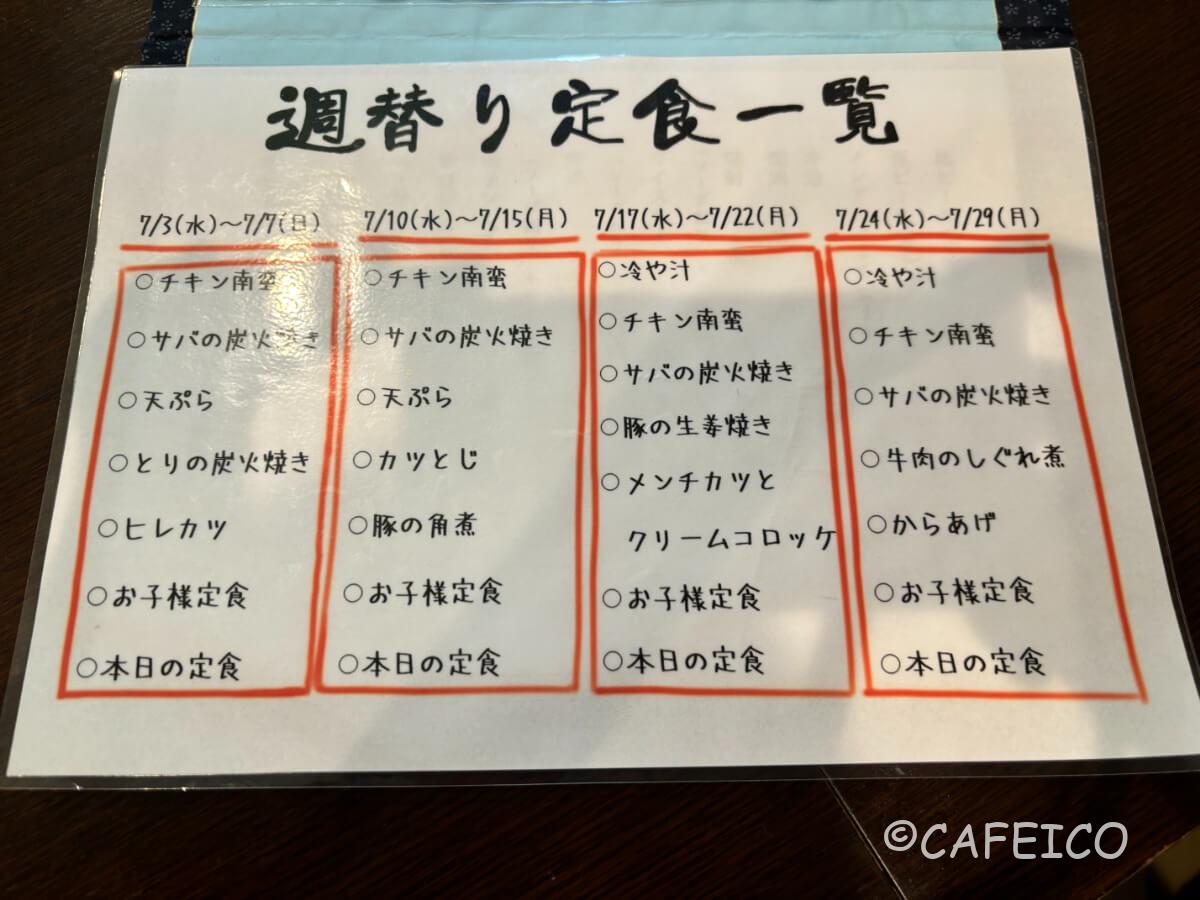 週替り定食一覧
7/3(水)～7/7(日)
○チキン南蛮
○サバの炭火焼き
○天ぷら
○とりの炭火焼き
○ヒレカツ
○お子様定食
○本日の定食
7/10(水)～7/15(月)
○チキン南蛮
○サバの炭火焼き
○天ぷら
○カツとじ
○豚の角煮
○お子様定食
○本日の定食
7/17(水)～7/22(月)
○冷や汁
○チキン南蛮
○サバの炭火焼き
○豚の生姜焼き
○メンチカツと
クリームコロッケ
○お子様定食
○本日の定食
7/24(水)～7/29(月)
○冷や汁
○チキン南蛮
○サバの炭火焼き
○牛肉のしぐれ煮
○からあげ
○お子様定食
○本日の定食
©CAFEICO